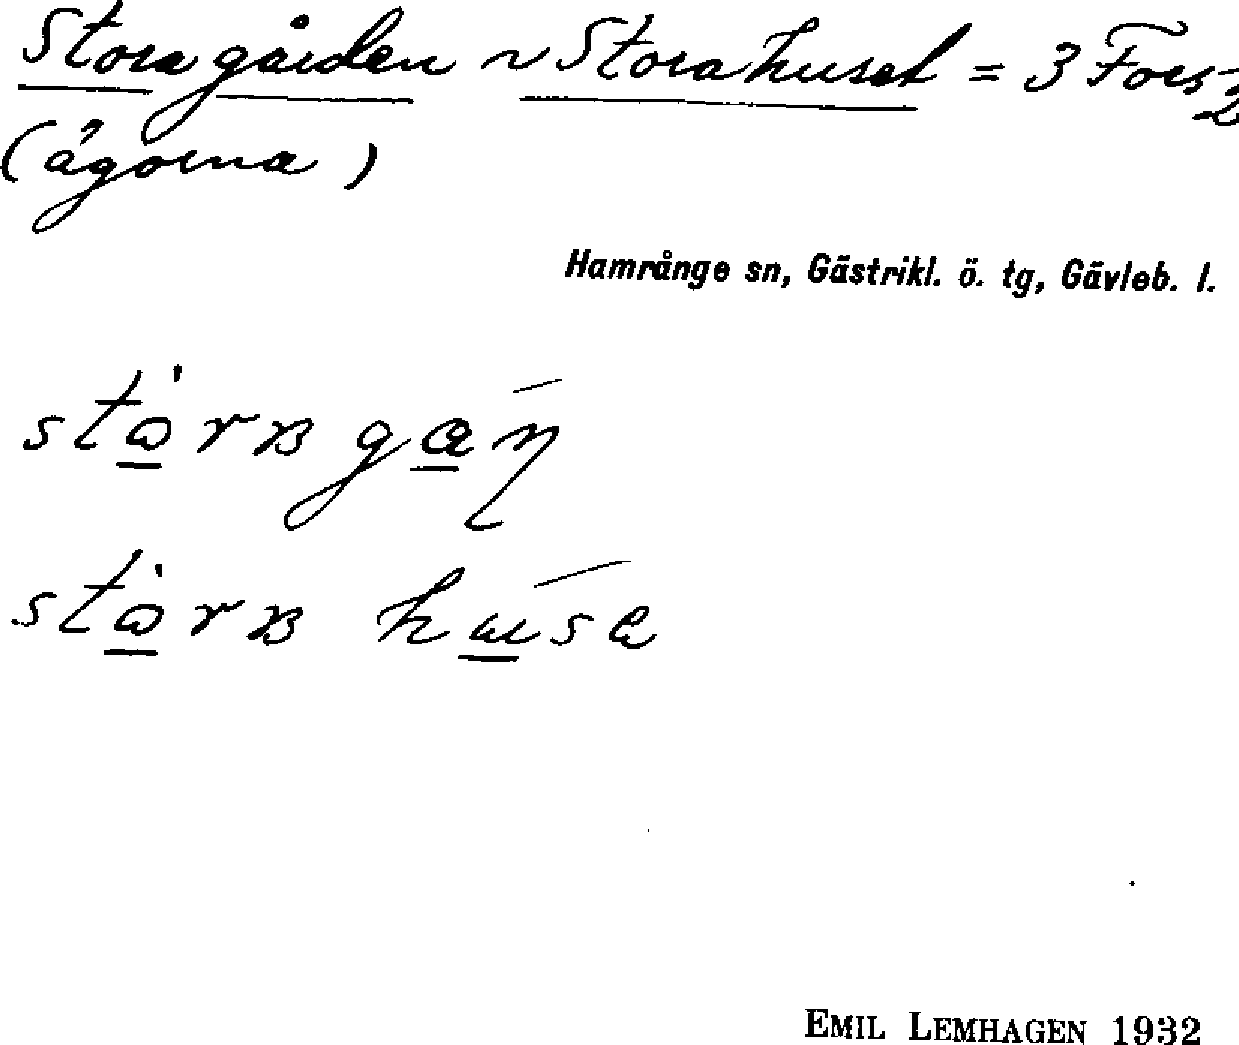 Storagården ~ Storahuset = 3 Fors2
(ägorna)
Hamrånge sn, Gästrikl. ö. tg, Gävleb. l.
EMIL LEMHAGEN 1932